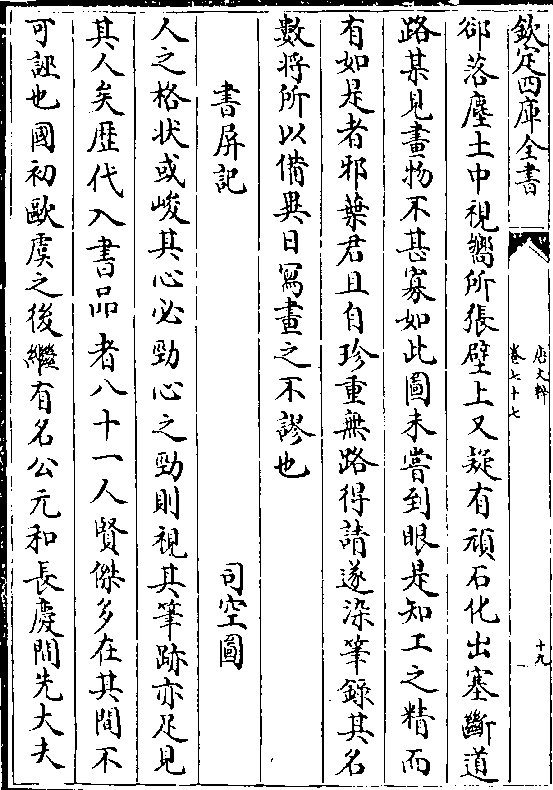 欽定四庫全書
唐文粹
卷七十七
十九
郤落塵土中視嚮所張壁上又疑有頑石化出塞斷道
路某見畫物不甚寡如此圖未嘗到眼是知工之精而
有如是者邪葉君且自珍重無路得請遂染筆錄其名
數將所以備異日寫畫之不謬也
書屏記
司空圖
人之格狀或峻其心必勁心之勁則視其筆跡亦足見
其人矣歴代入書品者八十一人賢傑多在其間不
可誣也國初歐虞之後繼有名公元和長慶間先大夫